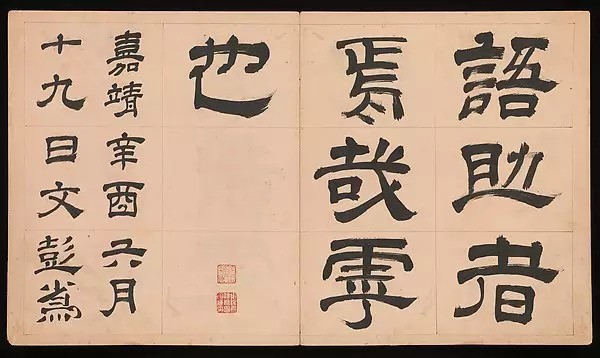 語助者
焉哉虖
也
嘉靖辛酉六月
十九日文彭寫